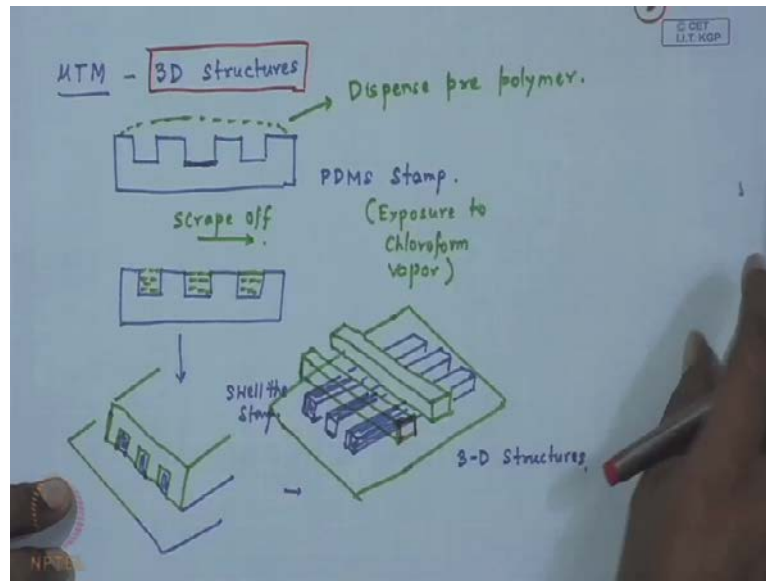 © CET
I.I.T. KGP
MTM - 3D Structures
Dispense pre polymer.
PDMS Stamp.
(Exposure to
Chloroform
vapor)
Scrape off
Swell the
Stamp
3-D Structures,
NPTEL